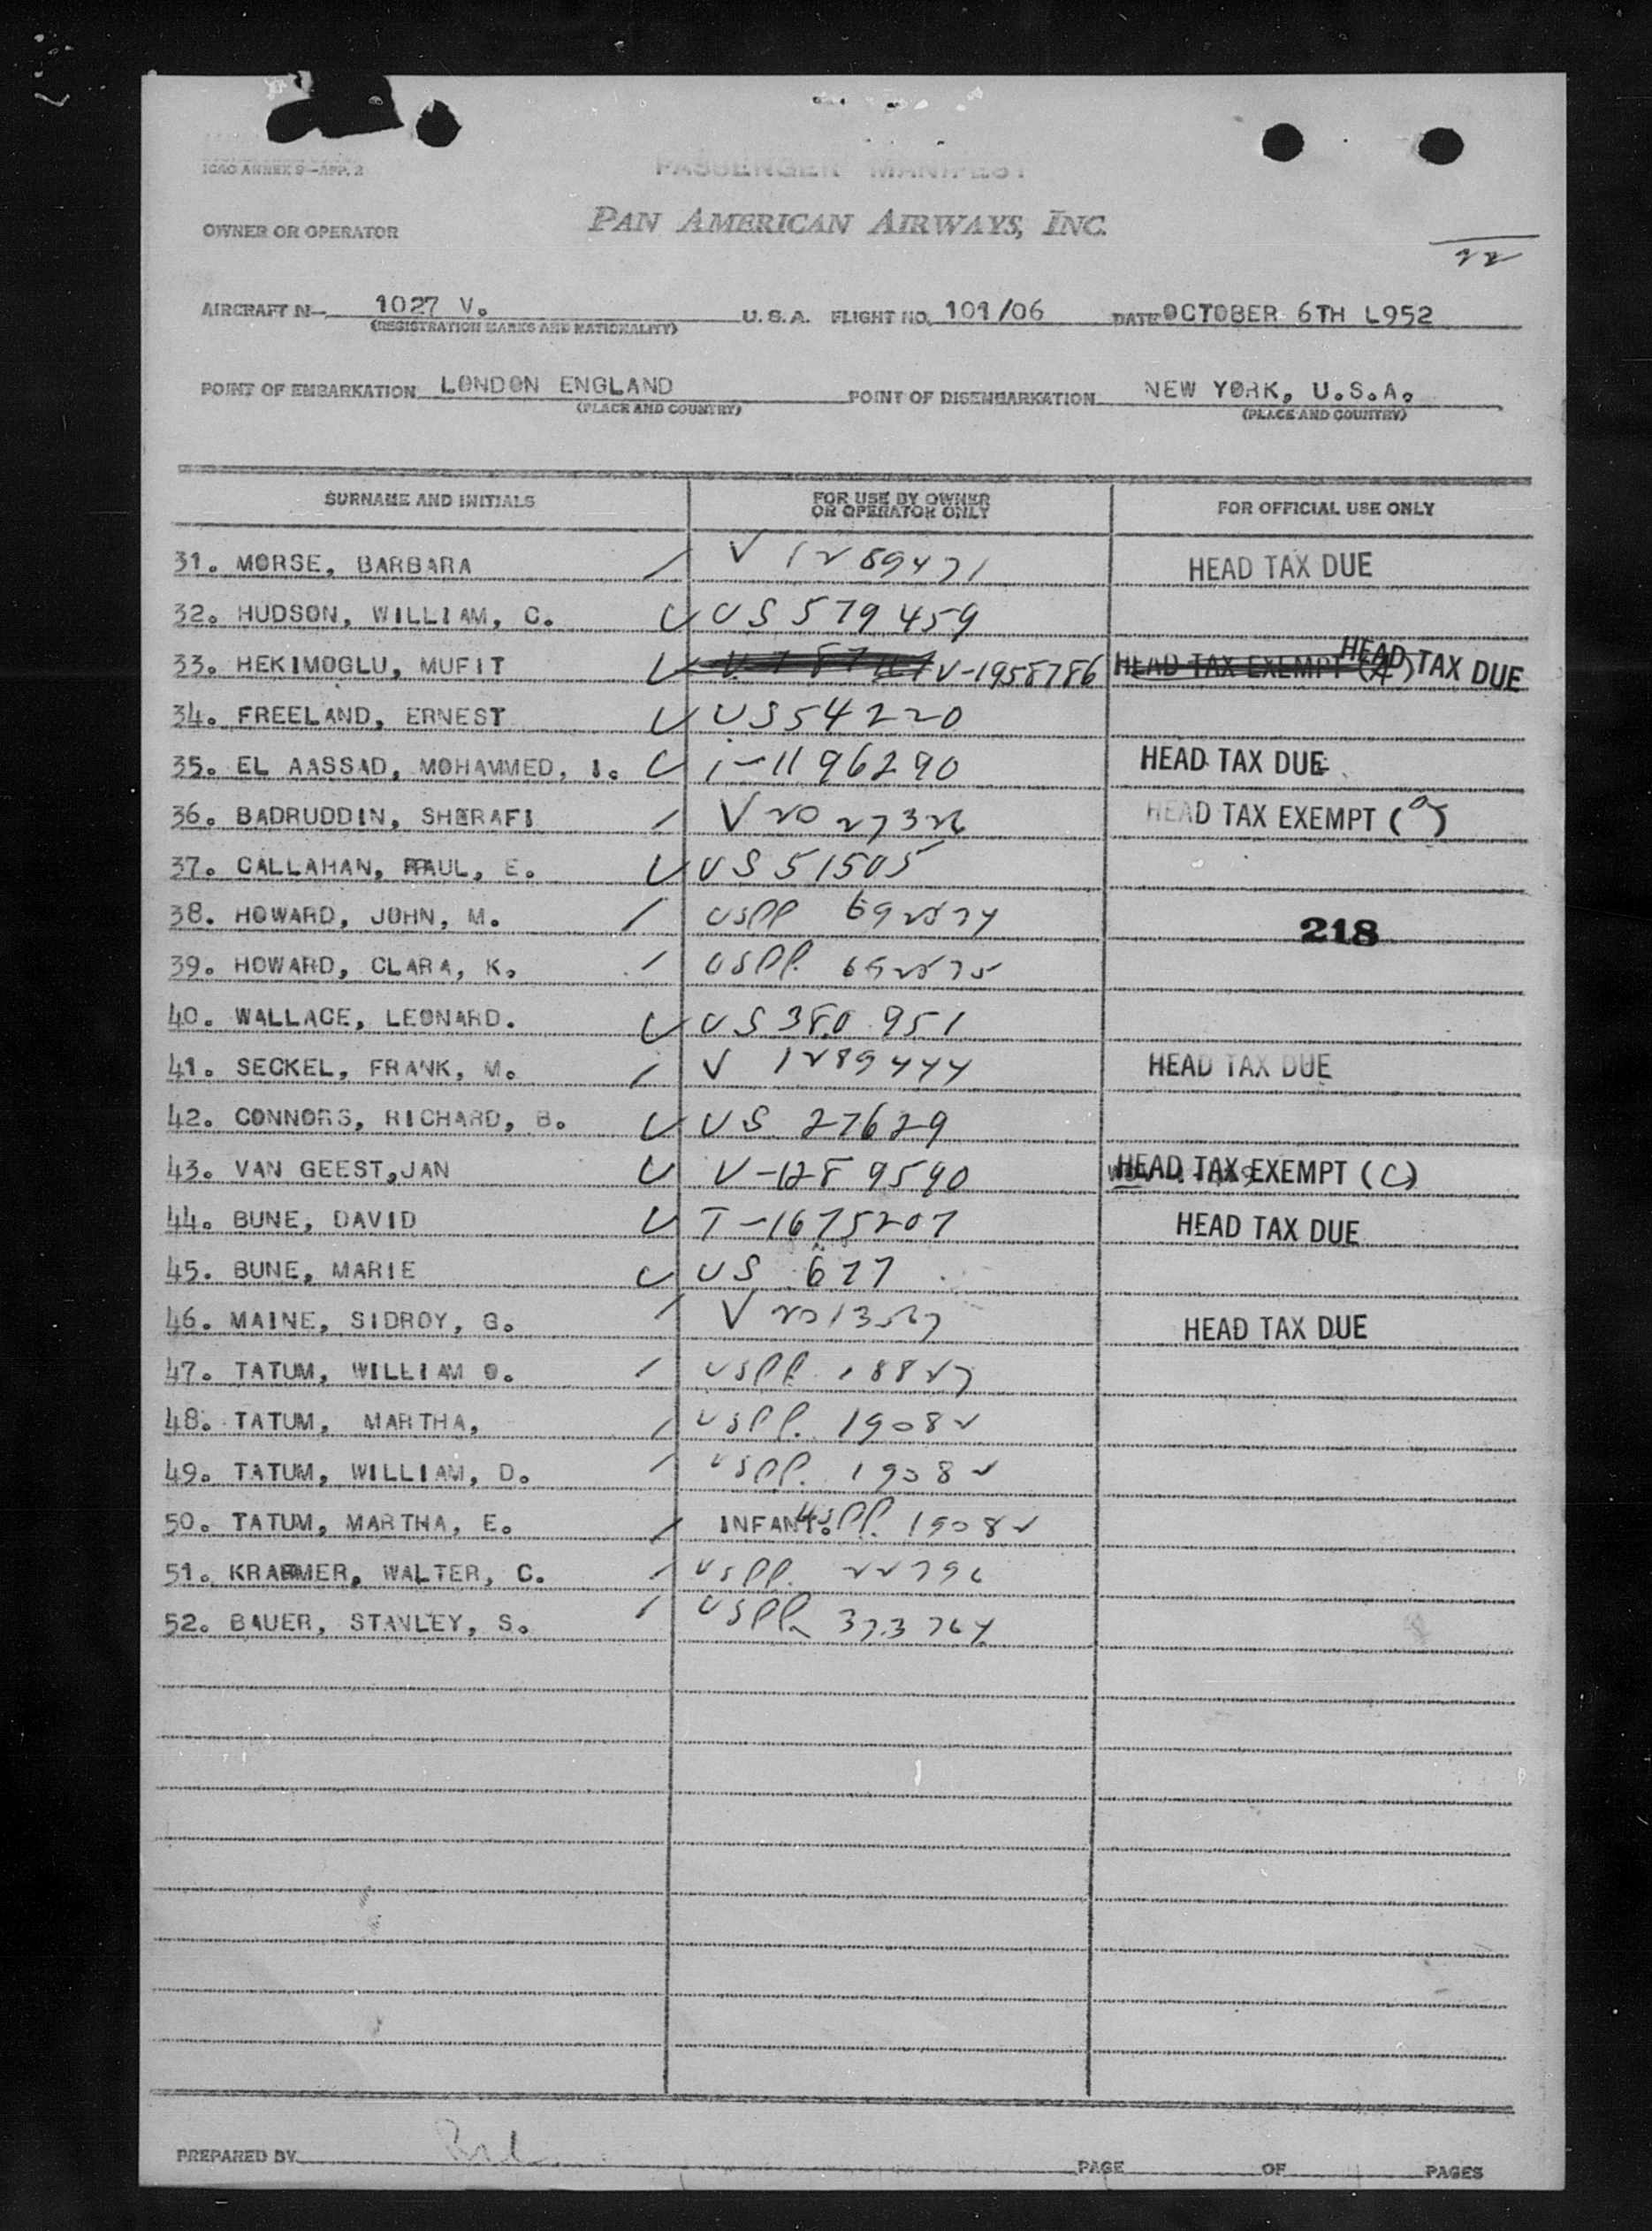 ICAO ANNEX 9—APP. 2
PASSENGER MANIFEST
OWNER OR OPERATOR
PAN AMERICAN AIRWAYS, INC.
22
AIRCRAFT N— 1027 V. U.S.A. FLIGHT NO. 101/06 DATE OCTOBER 6TH L952
(REGISTRATION MARKS AND NATIONALITY)
POINT OF EMBARKATION LONDON ENGLAND POINT OF DISEMBARKATION NEW YORK, U.S.A.
(PLACE AND COUNTRY) (PLACE AND COUNTRY)
SURNAME AND INITIALS FOR USE BY OWNER OR OPERATOR ONLY FOR OFFICIAL USE ONLY
31. MORSE, BARBARA / V 1289471 HEAD TAX DUE
32. HUDSON, WILLIAM, C. US 579459
33. HEKIMOGLU, MUFIT V-1958786 HEAD TAX EXEMPT (A) HEAD TAX DUE
34. FREELAND, ERNEST US54220
35. EL AASSAD, MOHAMMED, I. i-1196290 HEAD TAX DUE
36. BADRUDDIN, SHERAFI / V 2027326 HEAD TAX EXEMPT (a)
37. CALLAHAN, PAUL, E. US 51505
38. HOWARD, JOHN, M. / USPP 692574
218
39. HOWARD, CLARA, K. / USPP. 692575
40. WALLACE, LEONARD. US 380951
41. SECKEL, FRANK, M. / V 1289444 HEAD TAX DUE
42. CONNORS, RICHARD, B. US 27629
43. VAN GEEST,JAN V-1289590 HEAD TAX EXEMPT (C)
44. BUNE, DAVID T-1675207 HEAD TAX DUE
45. BUNE, MARIE US 677
46. MAINE, SIDROY, G. / V HEAD TAX DUE
47. TATUM, WILLIAM O. / USPP. 18827
48. TATUM, MARTHA, / USPP. 19082
49. TATUM, WILLIAM, D. / USPP. 19082
50. TATUM, MARTHA, E. / INFANT. USPP. 19082
51. KRAEMER, WALTER, C. / USPP. 22796
52. BAUER, STANLEY, S. / USPP. 373764
PREPARED BY PAGE OF PAGES